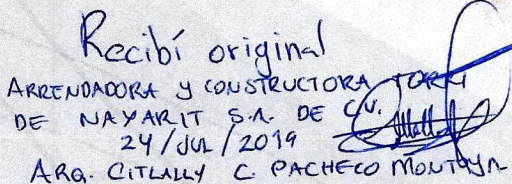 Recibí original
ARRENDADORA Y CONSTRUCTORA TORRE
DE NAYARIT S.A. DE C.V.
24/JUL/2019
ARQ. CITLALLY C. PACHECO MONTOYA